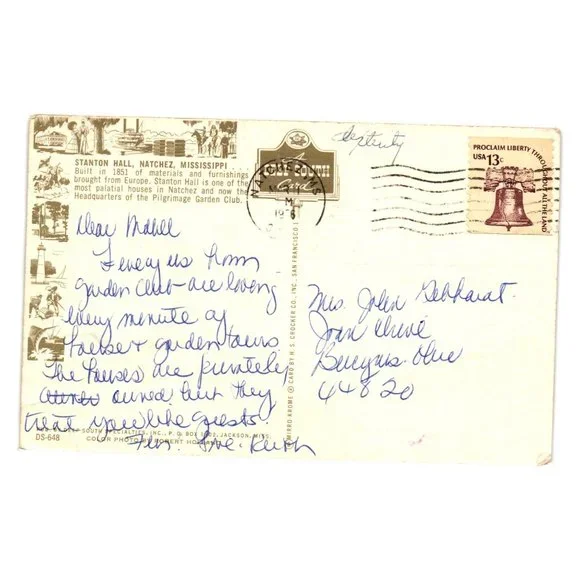 STANTON HALL, NATCHEZ, MISSISSIPPI . . .
Built in 1851 of materials and furnishings
brought from Europe. Stanton Hall is one of the
most palatial houses in Natchez and now the
Headquarters of the Pilgrimage Garden Club.
Dear Mabel
of us from
garden club are loving
every minute of
house + garden tours
The houses are privately
owned but they
treat you like guests.
DS-648
SOUTH SPECIALTIES, INC., P. O. BOX JACKSON, MISS.
COLOR PHOTO BY ROBERT
Love. Ruth
MIRRO KROME ® CARD BY H. S. CROCKER CO., INC., SAN FRANCISCO
Card
NATCHEZ MS
PROCLAIM LIBERTY THROUGHOUT ALL THE LAND
USA 13c
Mrs. John Gebhardt.
Drive
Bucyrus. Ohio
44820